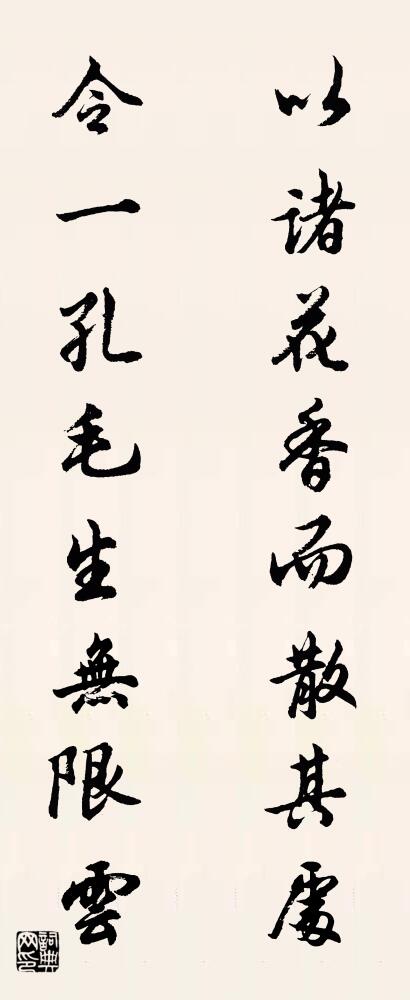 以諸花香而散其處
令一孔毛生無限雲
詞典網印